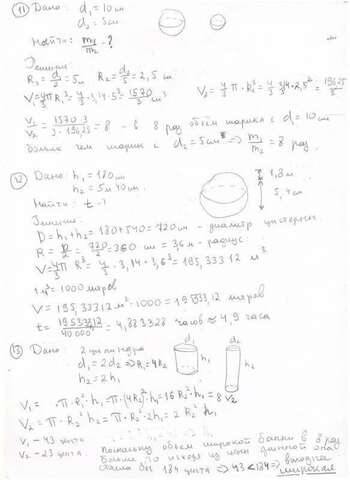 11) Дано: d₁ = 10 см
d₂ = 5 см
Найти: m₁/m₂ - ?
Решение:
R₁ = d₁/2 = 5 см R₂ = d₂/2 = 2,5 см
V₁ = 4/3 π R₁³ = 4/3 · 3,14 · 5³ = 1570/3 см³ V₂ = 4/3 π · R₂³ = 4/3 · 3,14 · 2,5³ = 196,25/3
V₁/V₂ = 1570·3/3·196,25 = 8 - в 8 раз объём шарика с d = 10 см
больше чем шарик с d₂ = 5 см ⇒ m₁/m₂ = 8 раз.
12) Дано: h₁ = 180 см
h₂ = 5 м 40 см.
1,8 м
5,4 м
Найти: t - ?
Решение:
D = h₁ + h₂ = 180 + 540 = 720 см - диаметр цистерны.
R = D/2 = 720/2 = 360 см = 3,6 м - радиус.
V = 4/3 π R³ = 4/3 · 3,14 · 3,6³ = 195,33312 м³
1 м³ = 1000 литров
V = 195,33312 м³ · 1000 = 195333,12 литров
t = 195333,12/40000 = 4,883328 часов ≈ 4,9 часа
13) Дано: 2 цилиндра
d₁ = 2d₂ ⇒ R₁ = 4R₂
h₂ = 2h₁
d₁ h₁ d₂ h₂
V₁ = π · R₁² · h₁ = π · (4R₂)² · h₁ = 16 R₂² h₁ = 8 V₂
V₂ = π · R₂² h₂ = π · R₂² · 2h₁ = 2 R₂² h₁
V₁ - 43 цента
V₂ - 23 цента. Поскольку объем широкой банки в 8 раз
больше, то исходя из цены длинной она
стоила бы 184 цента ⇒ 43 < 184 ⇒ выгодна
широкая